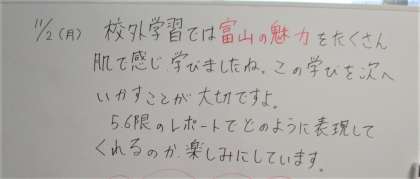 11/2(月) 校外学習では富山の魅力をたくさん
肌で感じ学びましたね。この学びを次へ
いかすことが大切ですよ。
5.6限のレポートでどのように表現して
くれるのか、楽しみにしています。